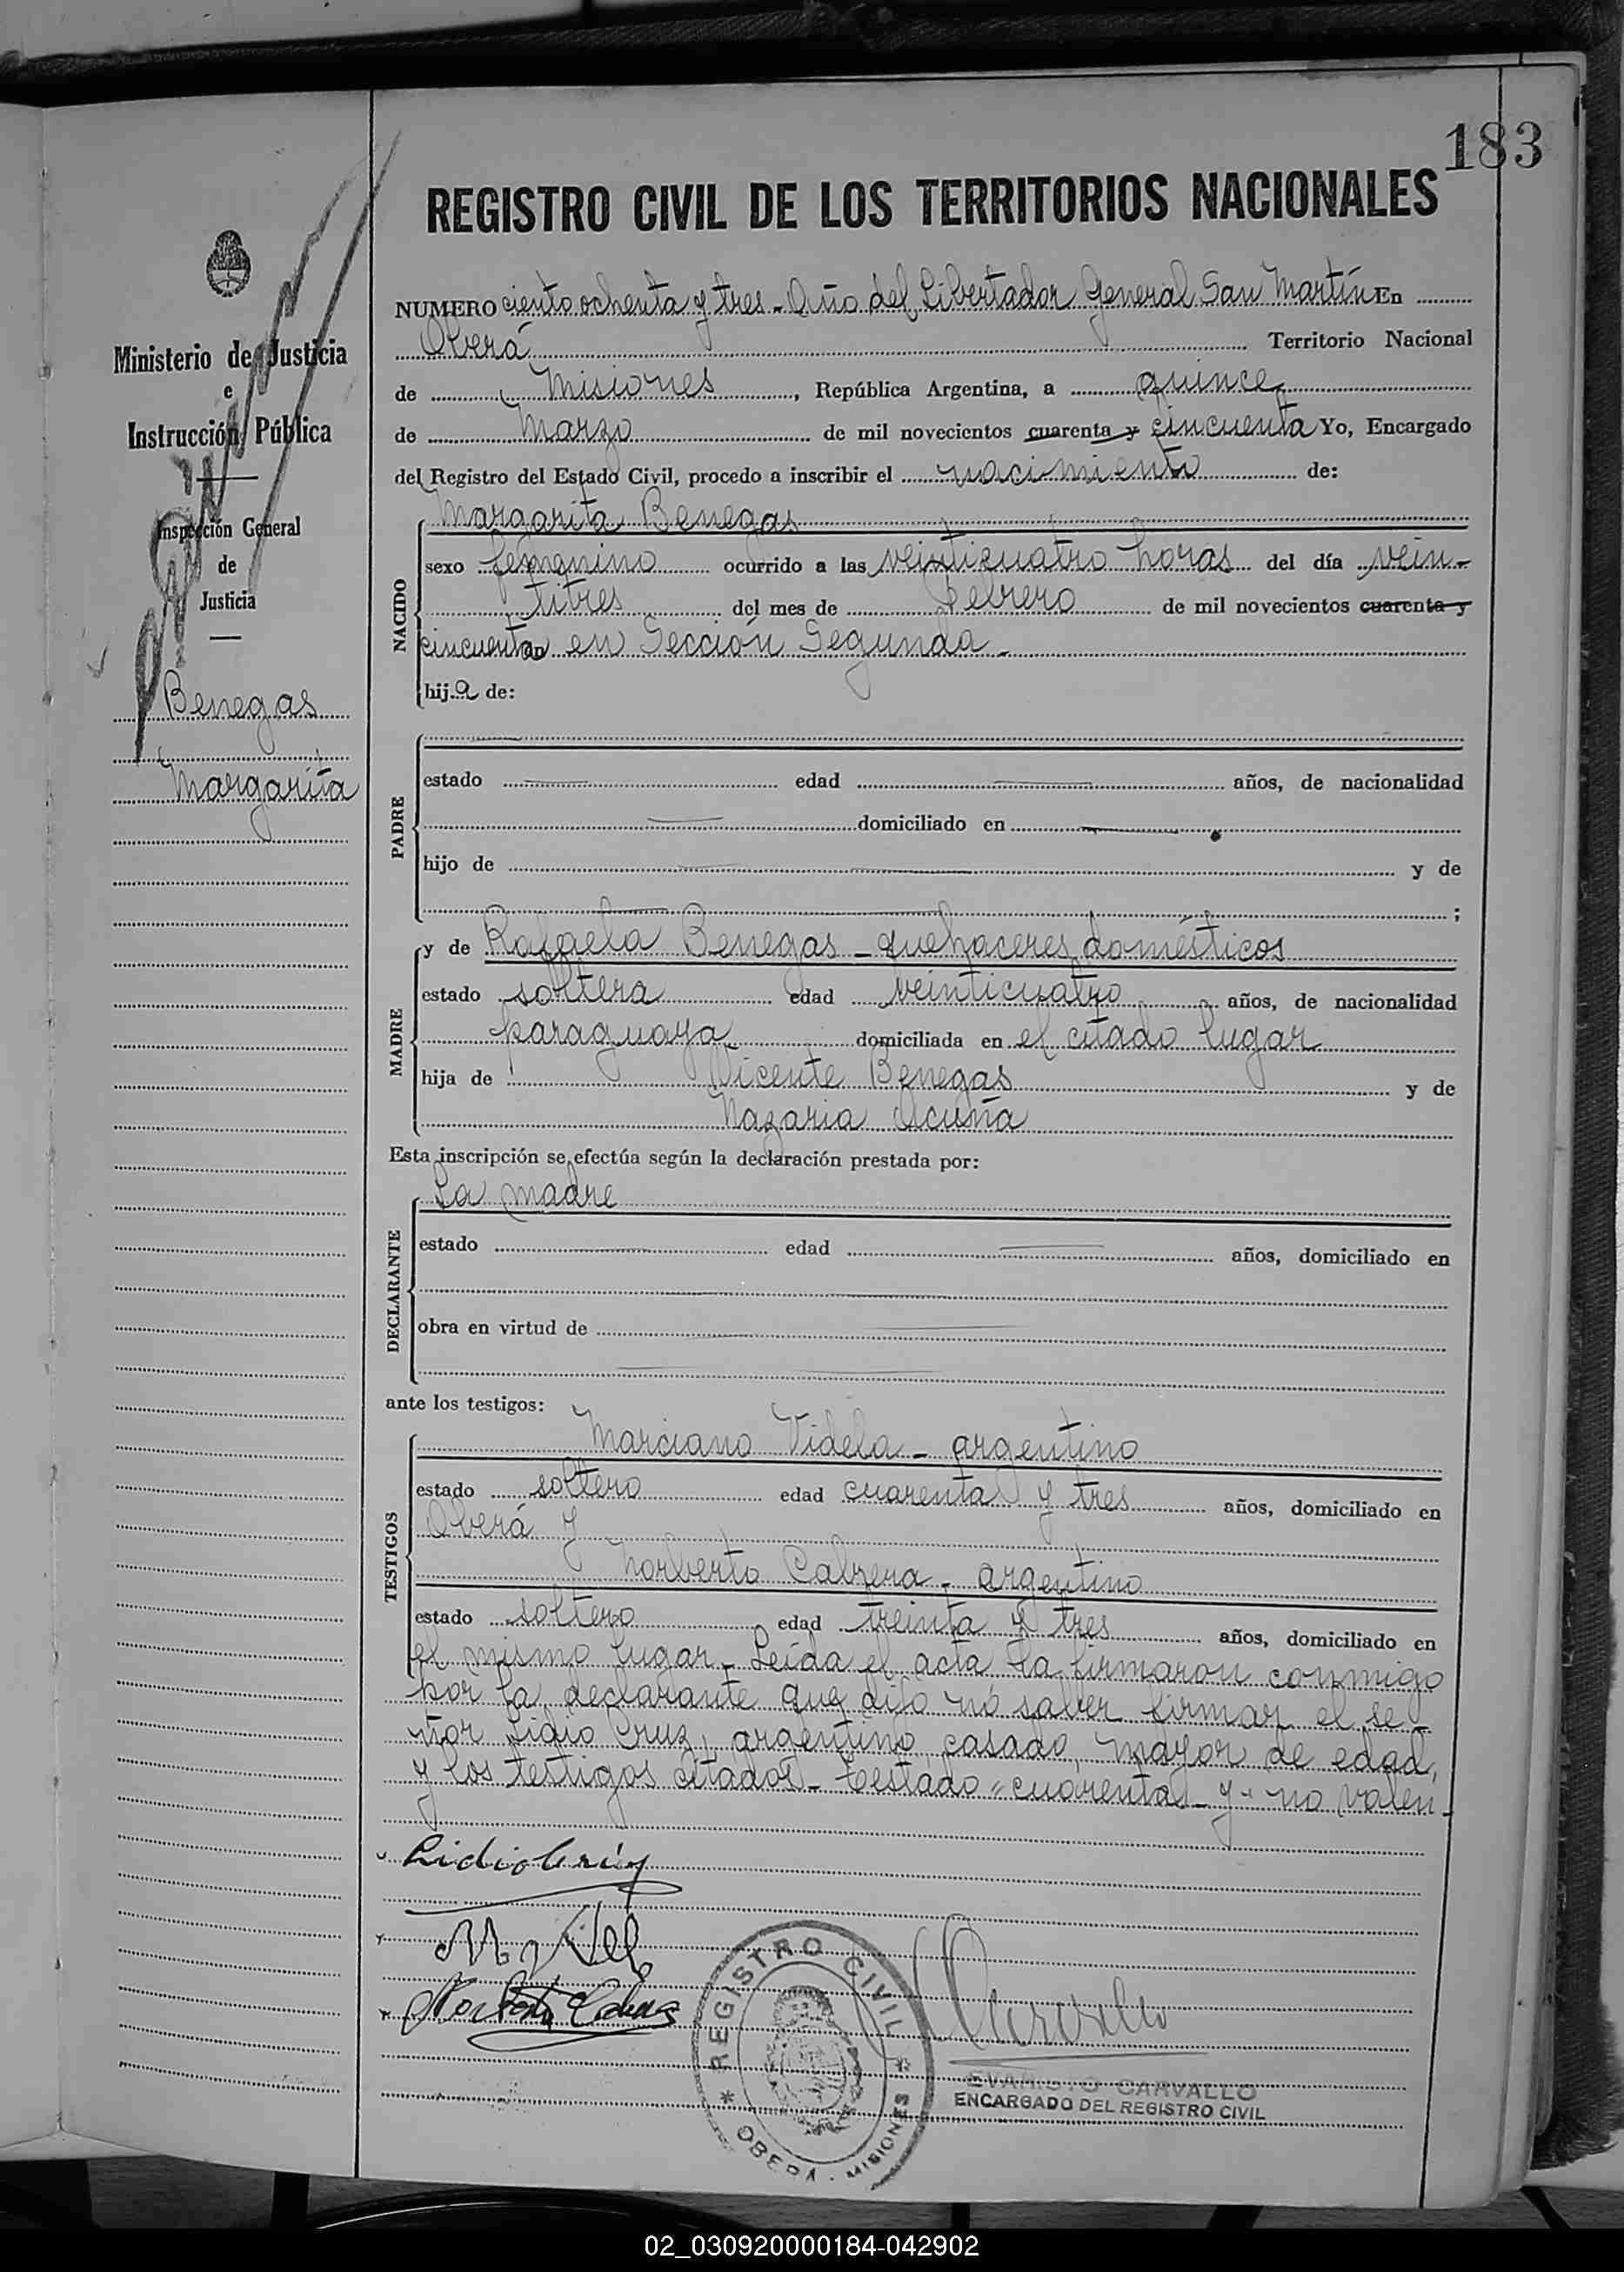 183
REGISTRO CIVIL DE LOS TERRITORIOS NACIONALES
NUMERO ciento ochenta y tres - Año del Libertador General San Martín En
Oberá Territorio Nacional
de Misiones, República Argentina, a quince
de Marzo de mil novecientos cuarenta y cincuenta Yo, Encargado
del Registro del Estado Civil, procedo a inscribir el nacimiento de:
Margarita Benegas
NACIDO
sexo femenino ocurrido a las veinticuatro horas del día vein-
titres del mes de Febrero de mil novecientos cuarenta y
cincuenta en Sección Segunda -
hija de:
PADRE
estado edad años, de nacionalidad
domiciliado en
hijo de y de
;
MADRE
y de Rafaela Benegas - quehaceres domésticos
estado soltera edad veinticuatro años, de nacionalidad
paraguaya domiciliada en el citado lugar
hija de Vicente Benegas y de
Nazaria Acuña
Esta inscripción se efectúa según la declaración prestada por:
La madre
DECLARANTE
estado edad años, domiciliado en
obra en virtud de
ante los testigos:
Marciano Videla - argentino
TESTIGOS
estado soltero edad cuarenta y tres años, domiciliado en
Oberá y
Norberto Cabrera - argentino
estado soltero edad treinta y tres años, domiciliado en
el mismo lugar - Leída el acta la firmaron conmigo
por la declarante que dijo nó saber firmar el se-
ñor Lidio Cruz, argentino, casado, mayor de edad,
y los testigos citados - Testado "cuarenta - y" no valen -
Lidio Cruz
Norberto Cabrera
Carvallo
REGISTRO CIVIL
OBERÁ - MISIONES
EVARISTO CARVALLO
ENCARGADO DEL REGISTRO CIVIL
Ministerio de Justicia
e
Instrucción Pública
Inspección General
de
Justicia
Benegas
Margarita
02_030920000184-042902